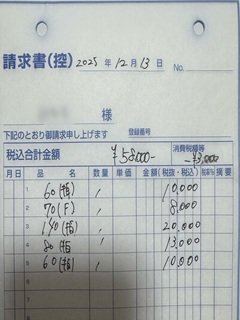 請求書(控) 2025年12月13日 No.
様
下記のとおり御請求申し上げます 登録番号
税込合計金額 ¥58,000- 消費税額等 -¥3,000
月日 品名 数量 単価 金額(税抜・税込) 税率% 摘要
1 60(指) 10,000
2 70(F) 8,000
3 140(指) 20,000
4 80(指) 13,000
5 60(指) 10,000